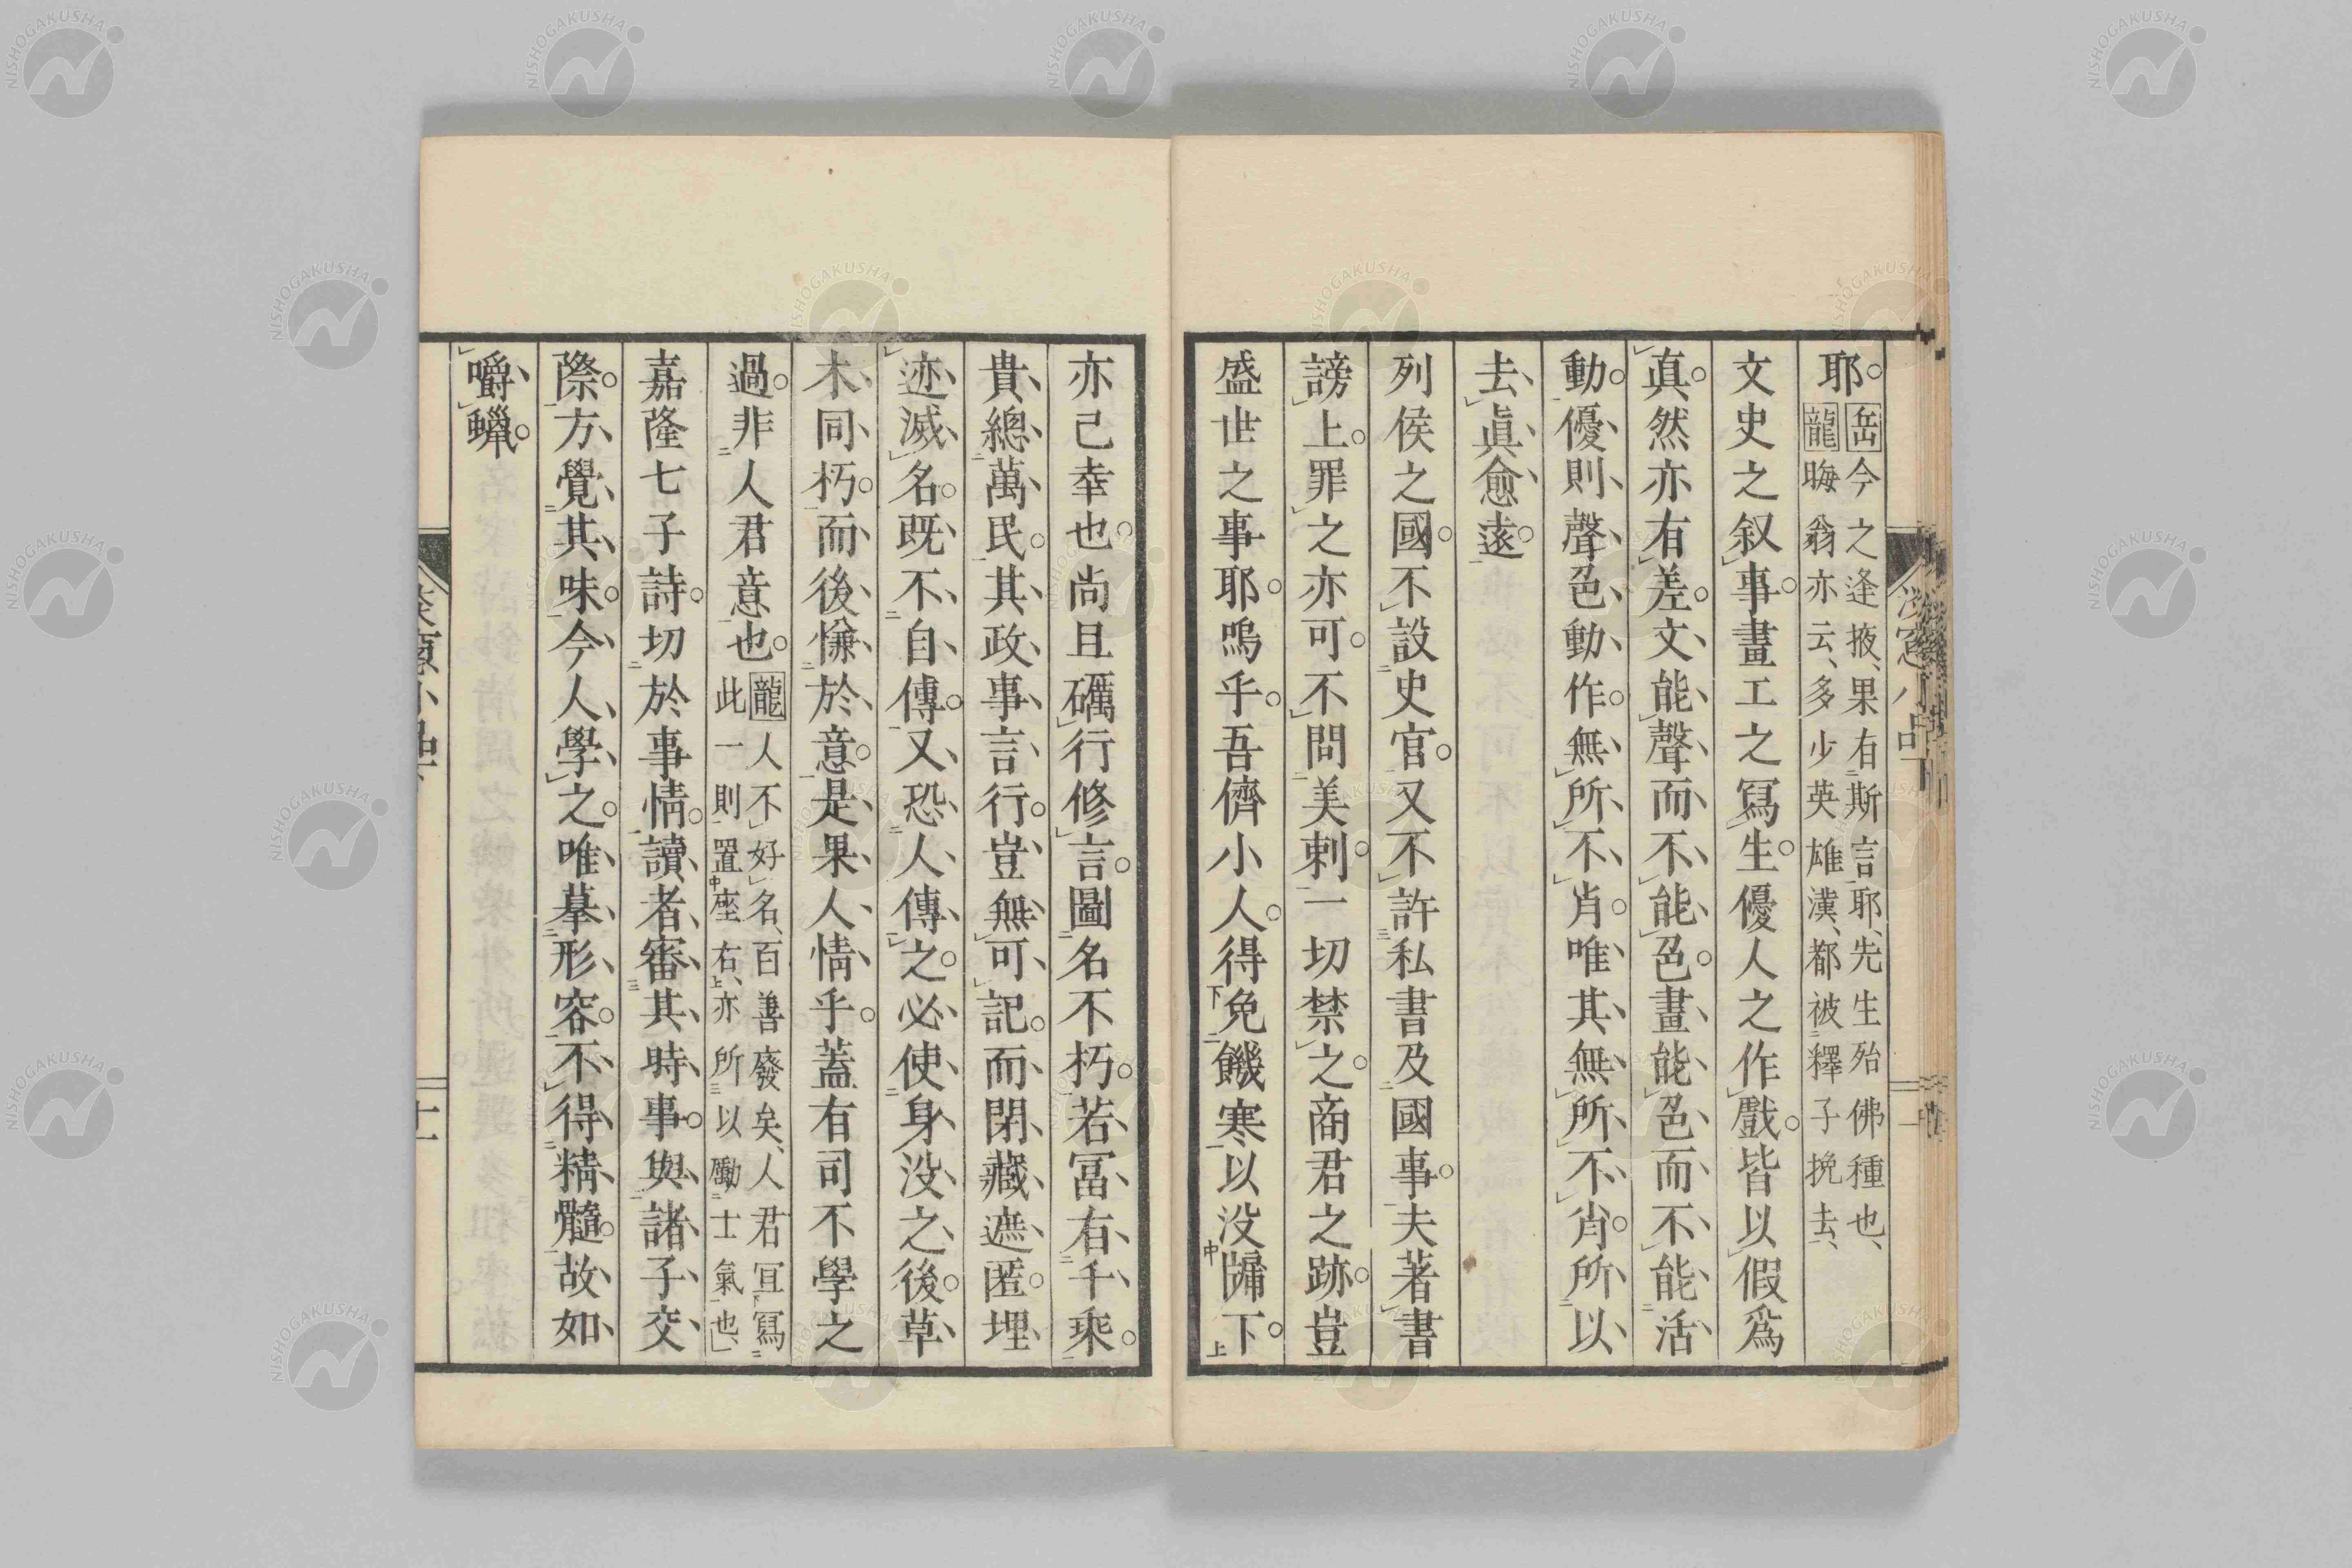 耶。岳今之逢掖、果有斯言耶、先生殆佛種也、
龍晦翁亦云、多少英雄漢、都被釋子挽去、
文史之叙事。畫工之冩生。優人之作戲。皆以假爲
眞。然亦有差。文能聲而不能色。畫能色而不能活
動。優則聲色動作。無所不肖。唯其無所不肖。所以
去眞愈遠。
列侯之國。不設史官。又不許私書及國事。夫著書
謗上。罪之亦可。不問美刺。一切禁之。商君之跡。豈
盛世之事耶。嗚乎。吾儕小人。得免饑寒以没牖下。
亦已幸也。尚且礪行修言。圖名不朽。若冨有千乘。
貴總萬民。其政事言行。豈無可記。而閉藏遮匿。埋
迹滅名。既不自傳。又恐人傳之。必使身没之後。草
木同朽。而後慊於意。是果人情乎。蓋有司不學之
過。非人君意也。龍人不好名、百善廢矣、人君宜冩
此一則置座右、亦所以勵士氣也、
嘉隆七子詩。切於事情。讀者審其時事。與諸子交
際。方覺其味。今人學之。唯摹形容。不得精髓。故如
嚼蠟。
談窓小品下
十一
NISHOGAKUSHA